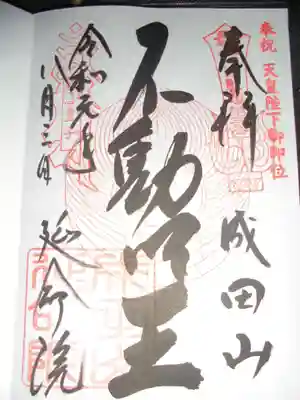 奉祝 天皇陛下御即位
奉拝
成田山
不動明王
令和元年
八月三日
延命院